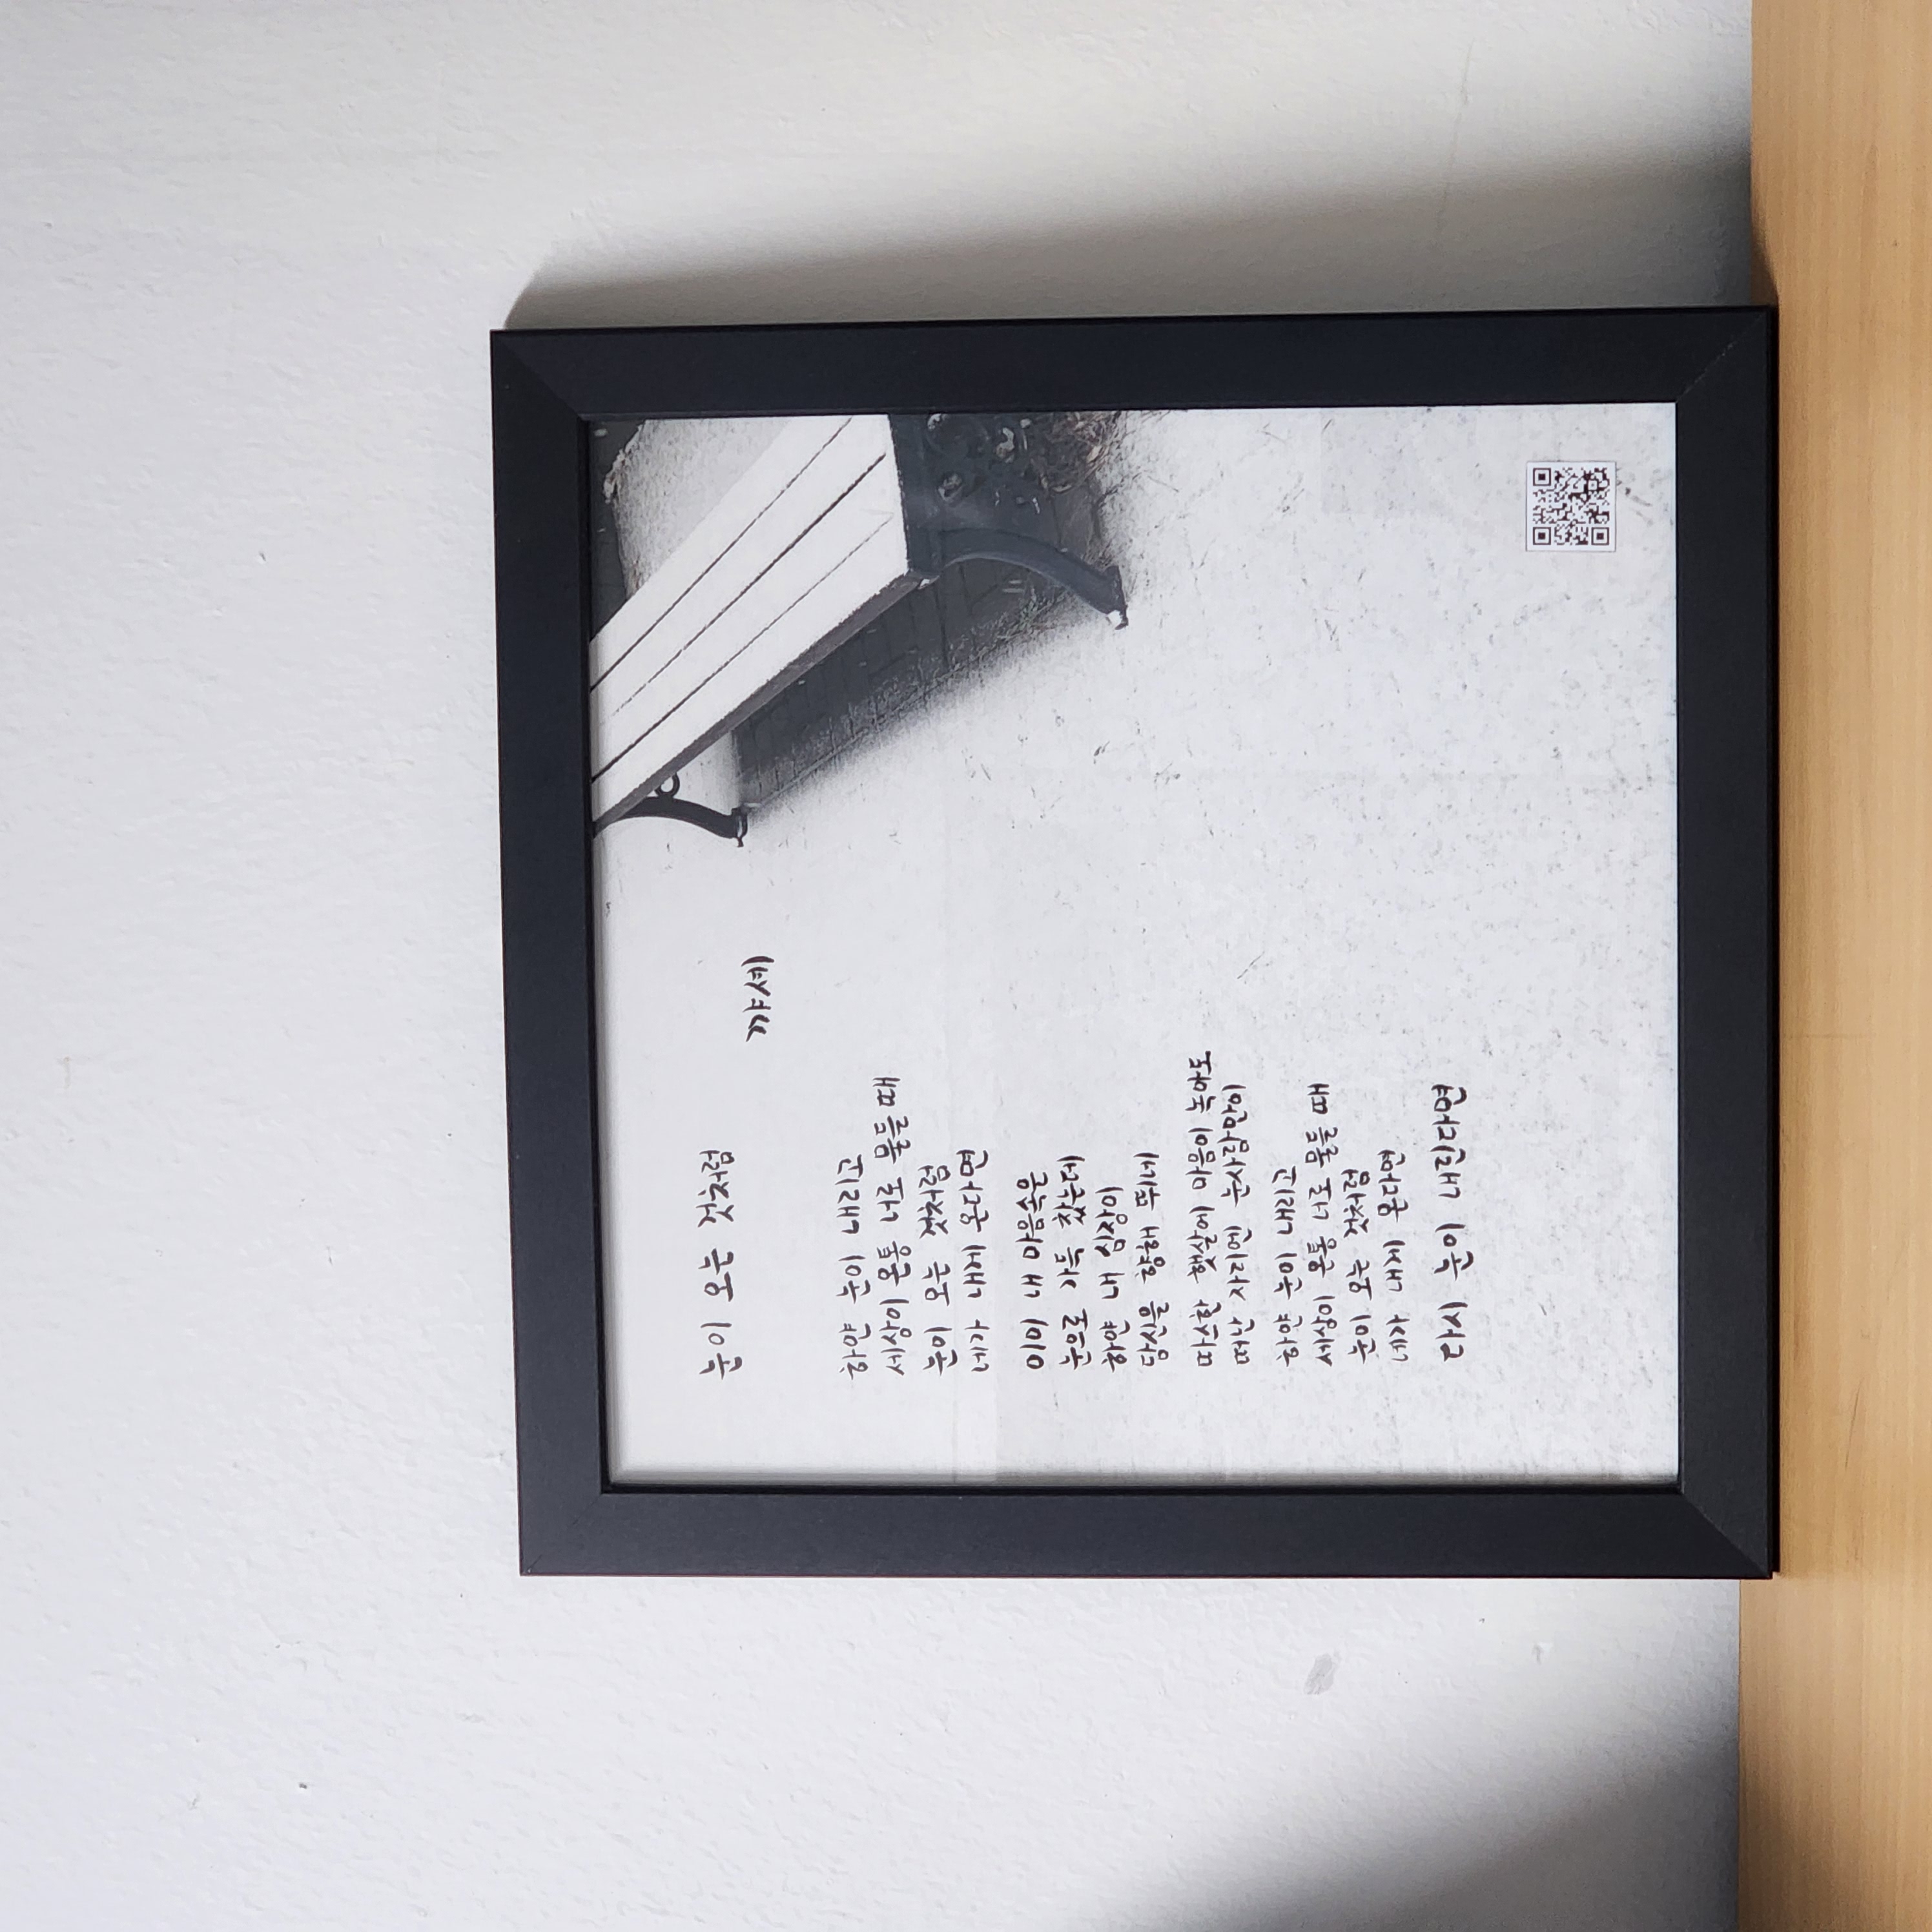 눈이 오는 것처럼
꺄세
하얀 눈이 내리고
세상이 온통 너로 물들 때
눈이 오는 것처럼
네가 내게 온다면
이미 내 마음속은
눈으로 가득 찼는데
하얀 내 심장이
당신을 향해 뛰네
따스한 햇살에 마음이 녹아도
떠난 자리엔 눈사람만이
하얀 눈이 내리고
세상이 온통 너로 물들 때
눈이 오는 것처럼
네가 내게 온다면
다시 눈이 내린다면